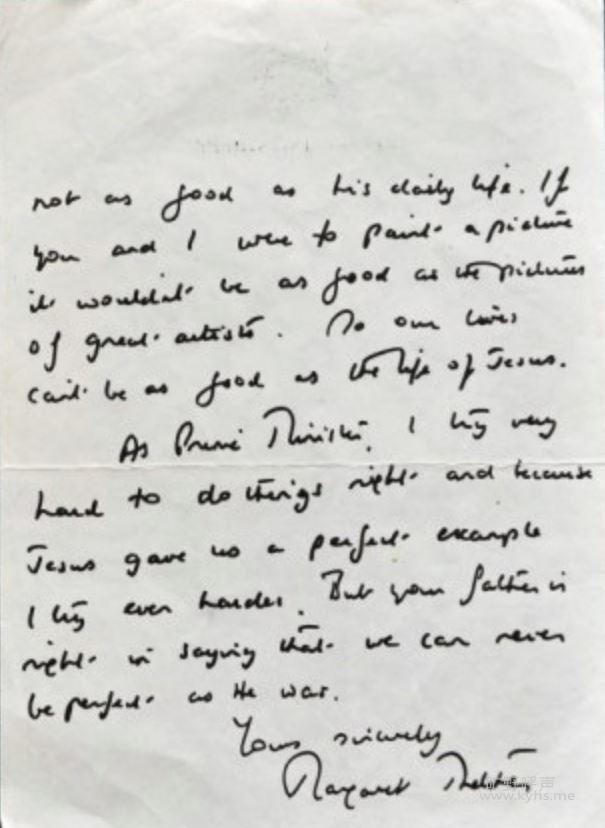 not as good as his daily life. If
you and I were to paint a picture
it wouldn't be as good as the pictures
of great artists. So our lives
can't be as good as the life of Jesus.
As Prime Minister, I try very
hard to do things right and because
Jesus gave us a perfect example
I try even harder. But your father is
right in saying that we can never
be perfect as He was.
Yours sincerely
Margaret Thatcher
www.kyhs.me